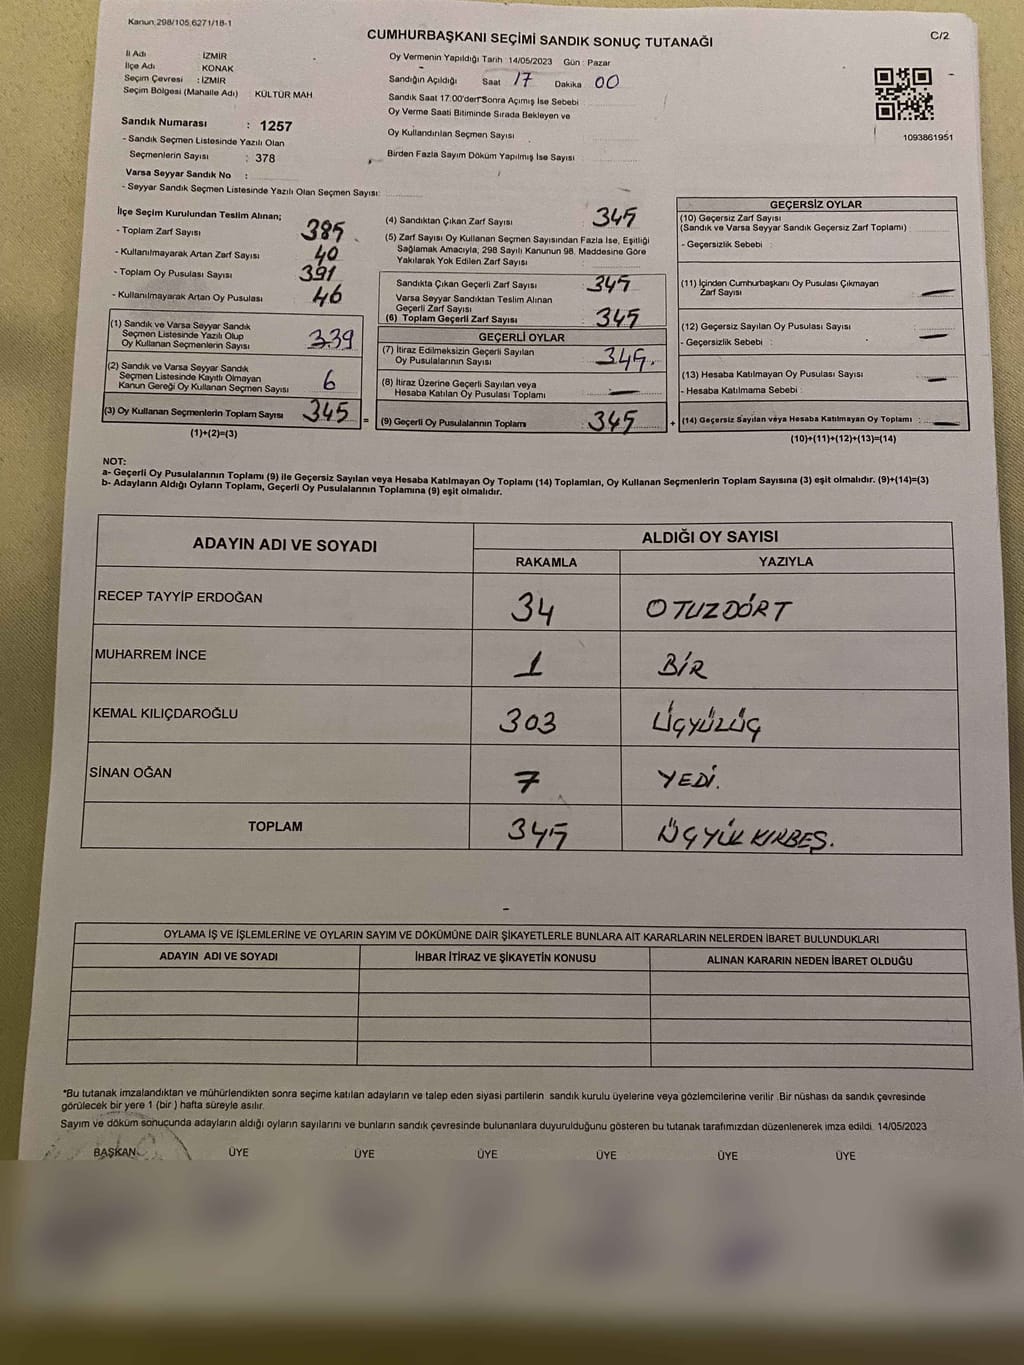 Kanun 298/105,6271/18-1
C/2
CUMHURBAŞKANI SEÇİMİ SANDIK SONUÇ TUTANAĞI
İl Adı İZMİR
İlçe Adı KONAK
Seçim Çevresi : İZMİR
Seçim Bölgesi (Mahalle Adı) : KÜLTÜR MAH
Oy Vermenin Yapıldığı Tarih 14/05/2023 Gün : Pazar
Sandığın Açıldığı Saat 17 Dakika 00
Sandık Saat 17:00'den Sonra Açımış İse Sebebi
Oy Verme Saati Bitiminde Sırada Bekleyen ve
Oy Kullandırılan Seçmen Sayısı
Birden Fazla Sayım Döküm Yapılmış İse Sayısı
1093861951
Sandık Numarası : 1257
- Sandık Seçmen Listesinde Yazılı Olan
Seçmenlerin Sayısı : 378
Varsa Seyyar Sandık No :
- Seyyar Sandık Seçmen Listesinde Yazılı Olan Seçmen Sayısı:
İlçe Seçim Kurulundan Teslim Alınan;
- Toplam Zarf Sayısı 385
- Kullanılmayarak Artan Zarf Sayısı 40
- Toplam Oy Pusulası Sayısı 391
- Kullanılmayarak Artan Oy Pusulası 46
(1) Sandık ve Varsa Seyyar Sandık
Seçmen Listesinde Yazılı Olup
Oy Kullanan Seçmenlerin Sayısı 339
(2) Sandık ve Varsa Seyyar Sandık
Seçmen Listesinde Kayıtlı Olmayan
Kanun Gereği Oy Kullanan Seçmen Sayısı 6
(3) Oy Kullanan Seçmenlerin Toplam Sayısı 345 =
(1)+(2)=(3)
(4) Sandıktan Çıkan Zarf Sayısı 345
(5) Zarf Sayısı Oy Kullanan Seçmen Sayısından Fazla İse, Eşitliği
Sağlamak Amacıyla, 298 Sayılı Kanunun 98. Maddesine Göre
Yakılarak Yok Edilen Zarf Sayısı
Sandıkta Çıkan Geçerli Zarf Sayısı : 345
Varsa Seyyar Sandıktan Teslim Alınan
Geçerli Zarf Sayısı
(6) Toplam Geçerli Zarf Sayısı 345
GEÇERLİ OYLAR
(7) İtiraz Edilmeksizin Geçerli Sayılan
Oy Pusulalarının Sayısı 345.
(8) İtiraz Üzerine Geçerli Sayılan veya
Hesaba Katılan Oy Pusulası Toplamı : —
(9) Geçerli Oy Pusulalarının Toplamı : 345 +
GEÇERSİZ OYLAR
(10) Geçersiz Zarf Sayısı
(Sandık ve Varsa Seyyar Sandık Geçersiz Zarf Toplamı)
- Geçersizlik Sebebi :
(11) İçinden Cumhurbaşkanı Oy Pusulası Çıkmayan
Zarf Sayısı —
(12) Geçersiz Sayılan Oy Pusulası Sayısı —
- Geçersizlik Sebebi :
(13) Hesaba Katılmayan Oy Pusulası Sayısı —
- Hesaba Katılmama Sebebi :
(14) Geçersiz Sayılan veya Hesaba Katılmayan Oy Toplamı : —
(10)+(11)+(12)+(13)=(14)
NOT:
a- Geçerli Oy Pusulalarının Toplamı (9) ile Geçersiz Sayılan veya Hesaba Katılmayan Oy Toplamı (14) Toplamları, Oy Kullanan Seçmenlerin Toplam Sayısına (3) eşit olmalıdır. (9)+(14)=(3)
b- Adayların Aldığı Oyların Toplamı, Geçerli Oy Pusulalarının Toplamına (9) eşit olmalıdır.
ADAYIN ADI VE SOYADI ALDIĞI OY SAYISI
RAKAMLA YAZIYLA
RECEP TAYYİP ERDOĞAN 34 OTUZDÖRT
MUHARREM İNCE 1 BİR
KEMAL KILIÇDAROĞLU 303 ÜÇYÜZÜÇ
SİNAN OĞAN 7 YEDİ.
TOPLAM 345 ÜÇYÜK KIRBEŞ.
OYLAMA İŞ VE İŞLEMLERİNE VE OYLARIN SAYIM VE DÖKÜMÜNE DAİR ŞİKAYETLERLE BUNLARA AİT KARARLARIN NELERDEN İBARET BULUNDUKLARI
ADAYIN ADI VE SOYADI İHBAR İTİRAZ VE ŞİKAYETİN KONUSU ALINAN KARARIN NEDEN İBARET OLDUĞU
*Bu tutanak imzalandıktan ve mühürlendikten sonra seçime katılan adayların ve talep eden siyasi partilerin sandık kurulu üyelerine veya gözlemcilerine verilir .Bir nüshası da sandık çevresinde
görülecek bir yere 1 (bir ) hafta süreyle asılır.
Sayım ve döküm sonucunda adayların aldığı oyların sayılarını ve bunların sandık çevresinde bulunanlara duyurulduğunu gösteren bu tutanak tarafımızdan düzenlenerek imza edildi. 14/05/2023
BAŞKAN ÜYE ÜYE ÜYE ÜYE ÜYE ÜYE